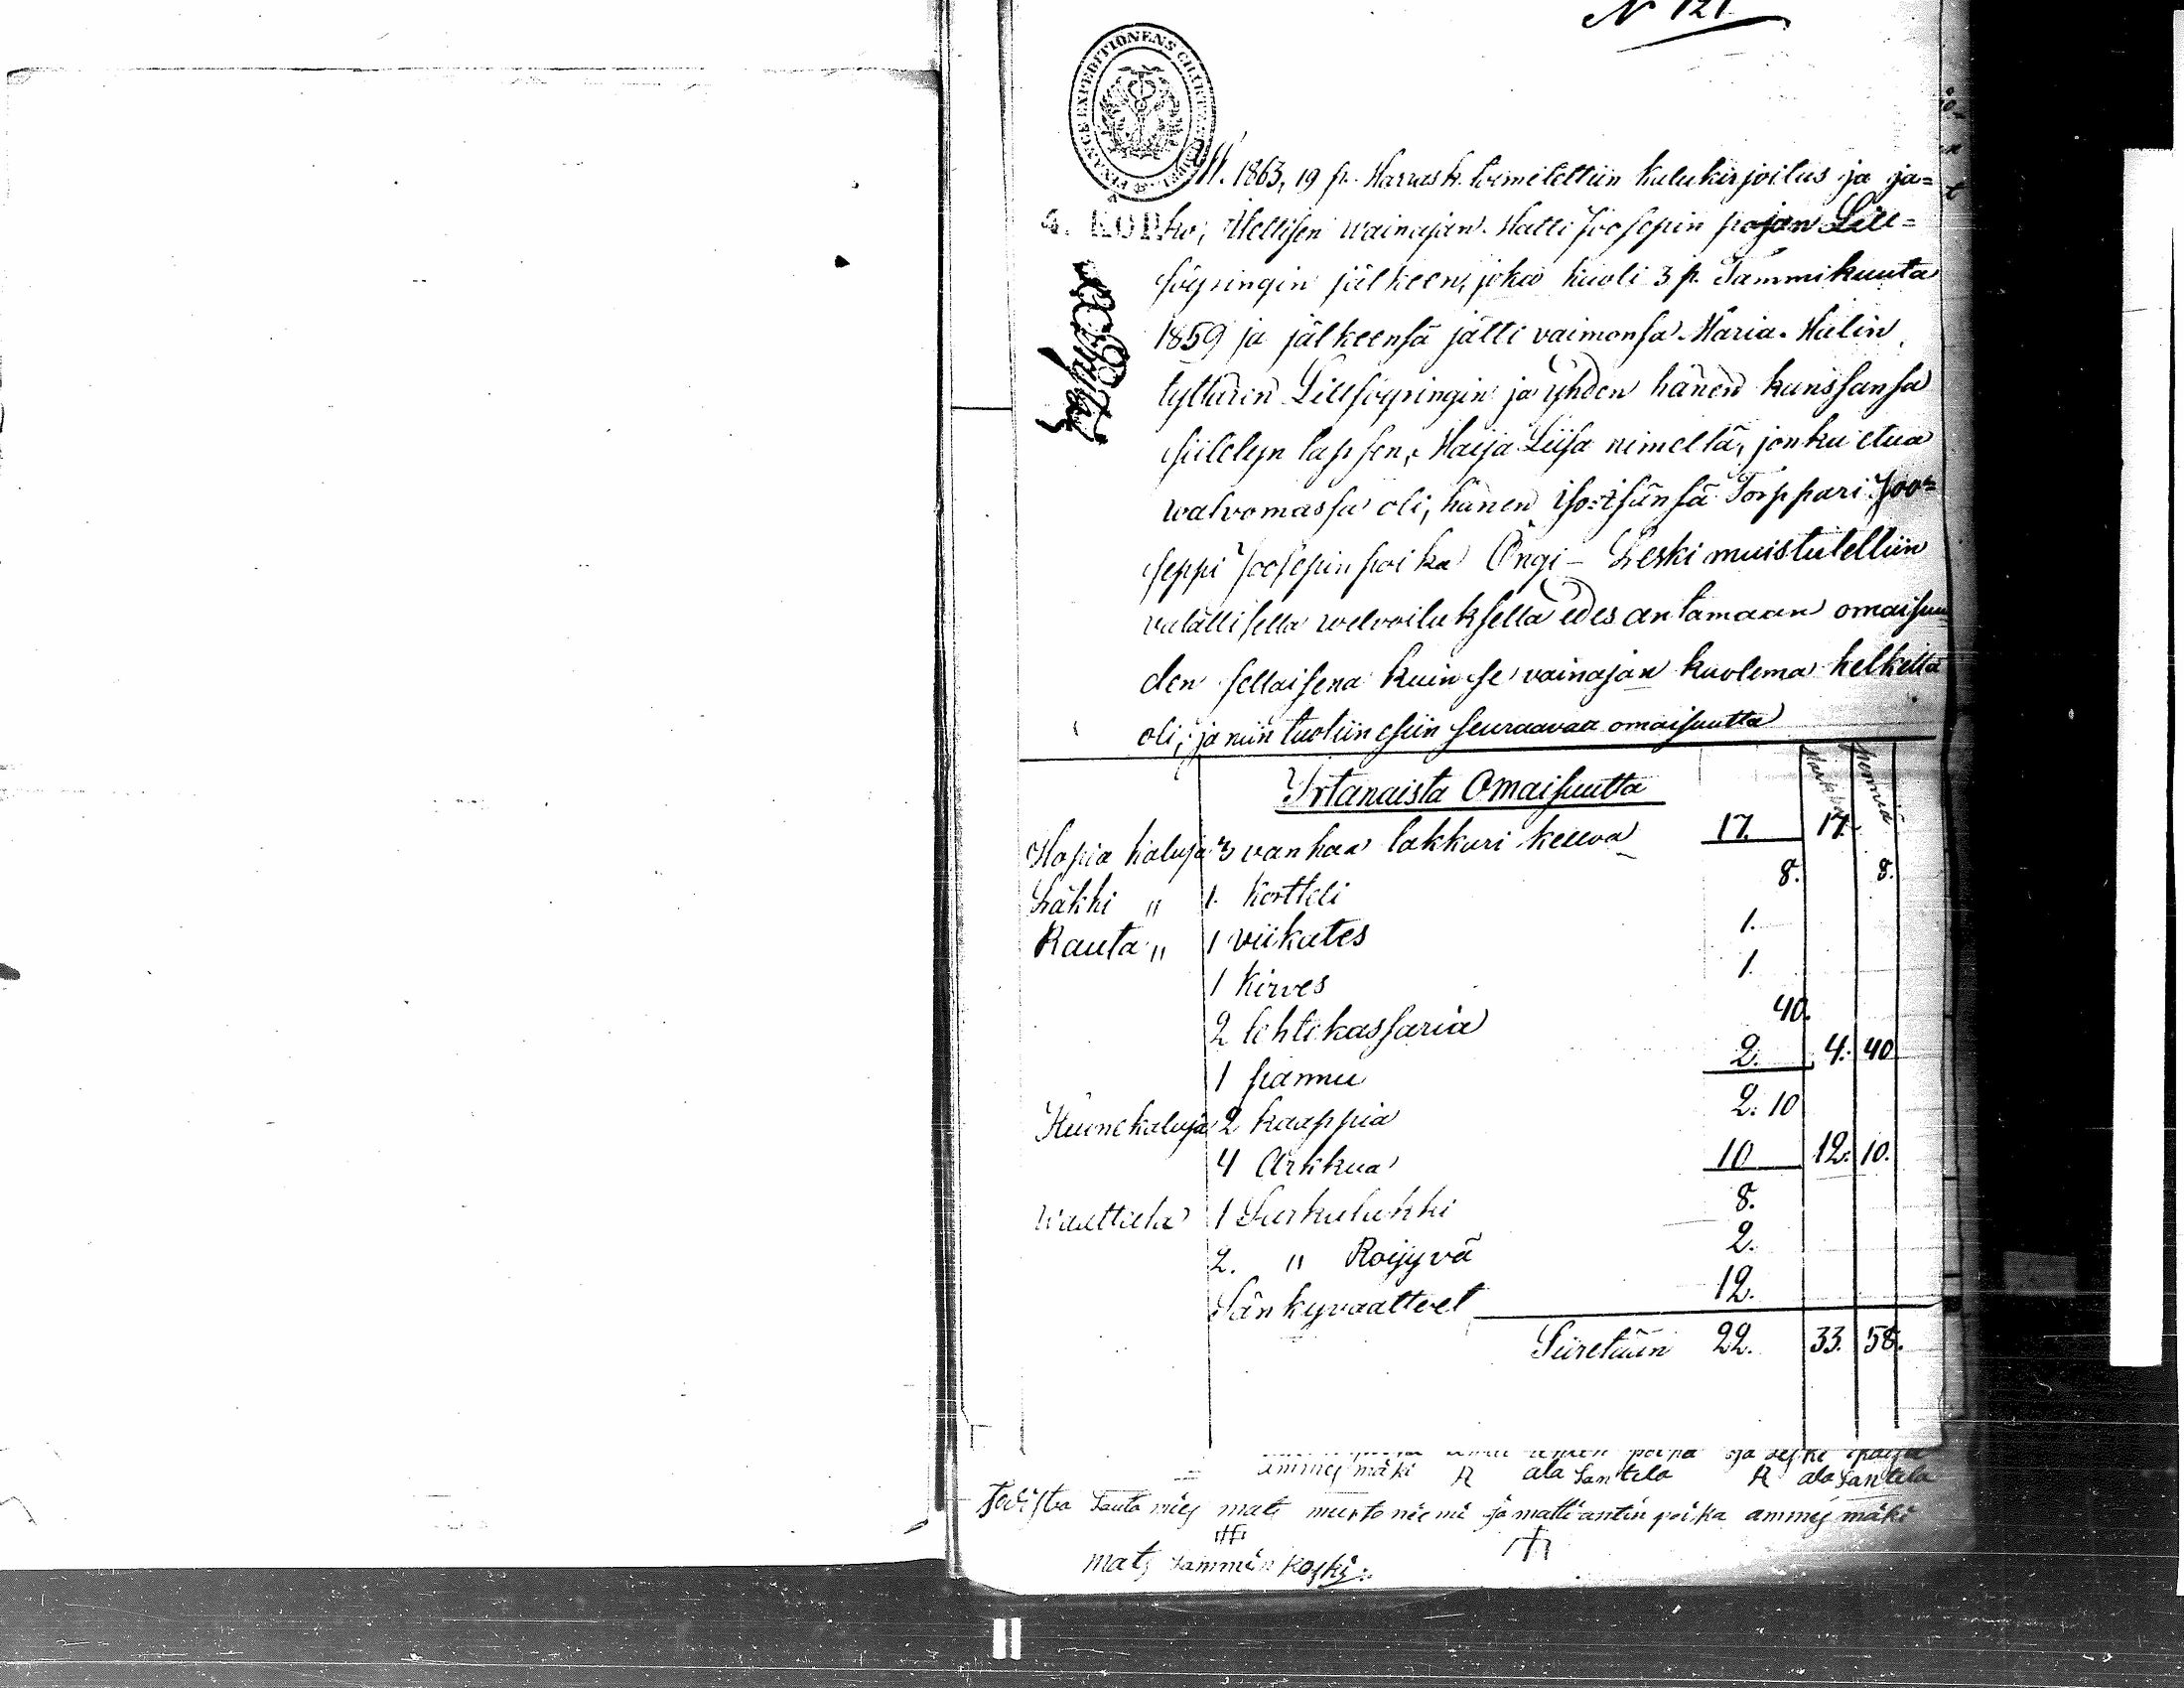 N 121.
FINANCE EXPEDITIONENS
4. KOP.
W. 1863, 19 p. Marrask. toimitettiin kalukirjoitus ja ja=
ko, Itellisen wainajan Matti Joosepin pojan Lill=
söyringin jälkeen, joka kuoli 3 p. Tammikuuta
1859 ja jälkeensä jätti vaimonsa Maria Matin
tyttären Lillsöyringin ja yhden hänen kanssansa
siitetyn lapsen, Maija Liisa nimeltä, jonka etua
walvomassa oli, hänen iso=isänsä Torppari Joo=
seppi Joosepin poika Ongi - Leski muistutettiin
valallisella welvoituksella edes antamaan omaisuu
den sellaisena kuin se vainajan kuolema hetkellä
oli, ja niin tuotiin esiin seuraavaa omaisuutta
Irtanaista Omaisuutta
Hopia kaluja 3 vanhaa lakkari kelloa 17. 17.
Läkki " 1. kortteli 8. 8.
Rauta " 1 viikates 1.
1 Kirves 1.
2 lehtikassaria 40.
1 pannu 2. 4. 40
Huonekaluja 2 kaappia 2. 10
4 Arkkua 10 12. 10.
Waatteita 1 Surkutukki 8.
2. " Roijyvä 2.
Sänkyvaatteet 12.
Siiretään 22. 33. 58.
ammes mäki R ala Santela R ala Santela
Todista Lauta mies mats murto niemi ja matti antin poika ammes mäki
mats Lammin Koski